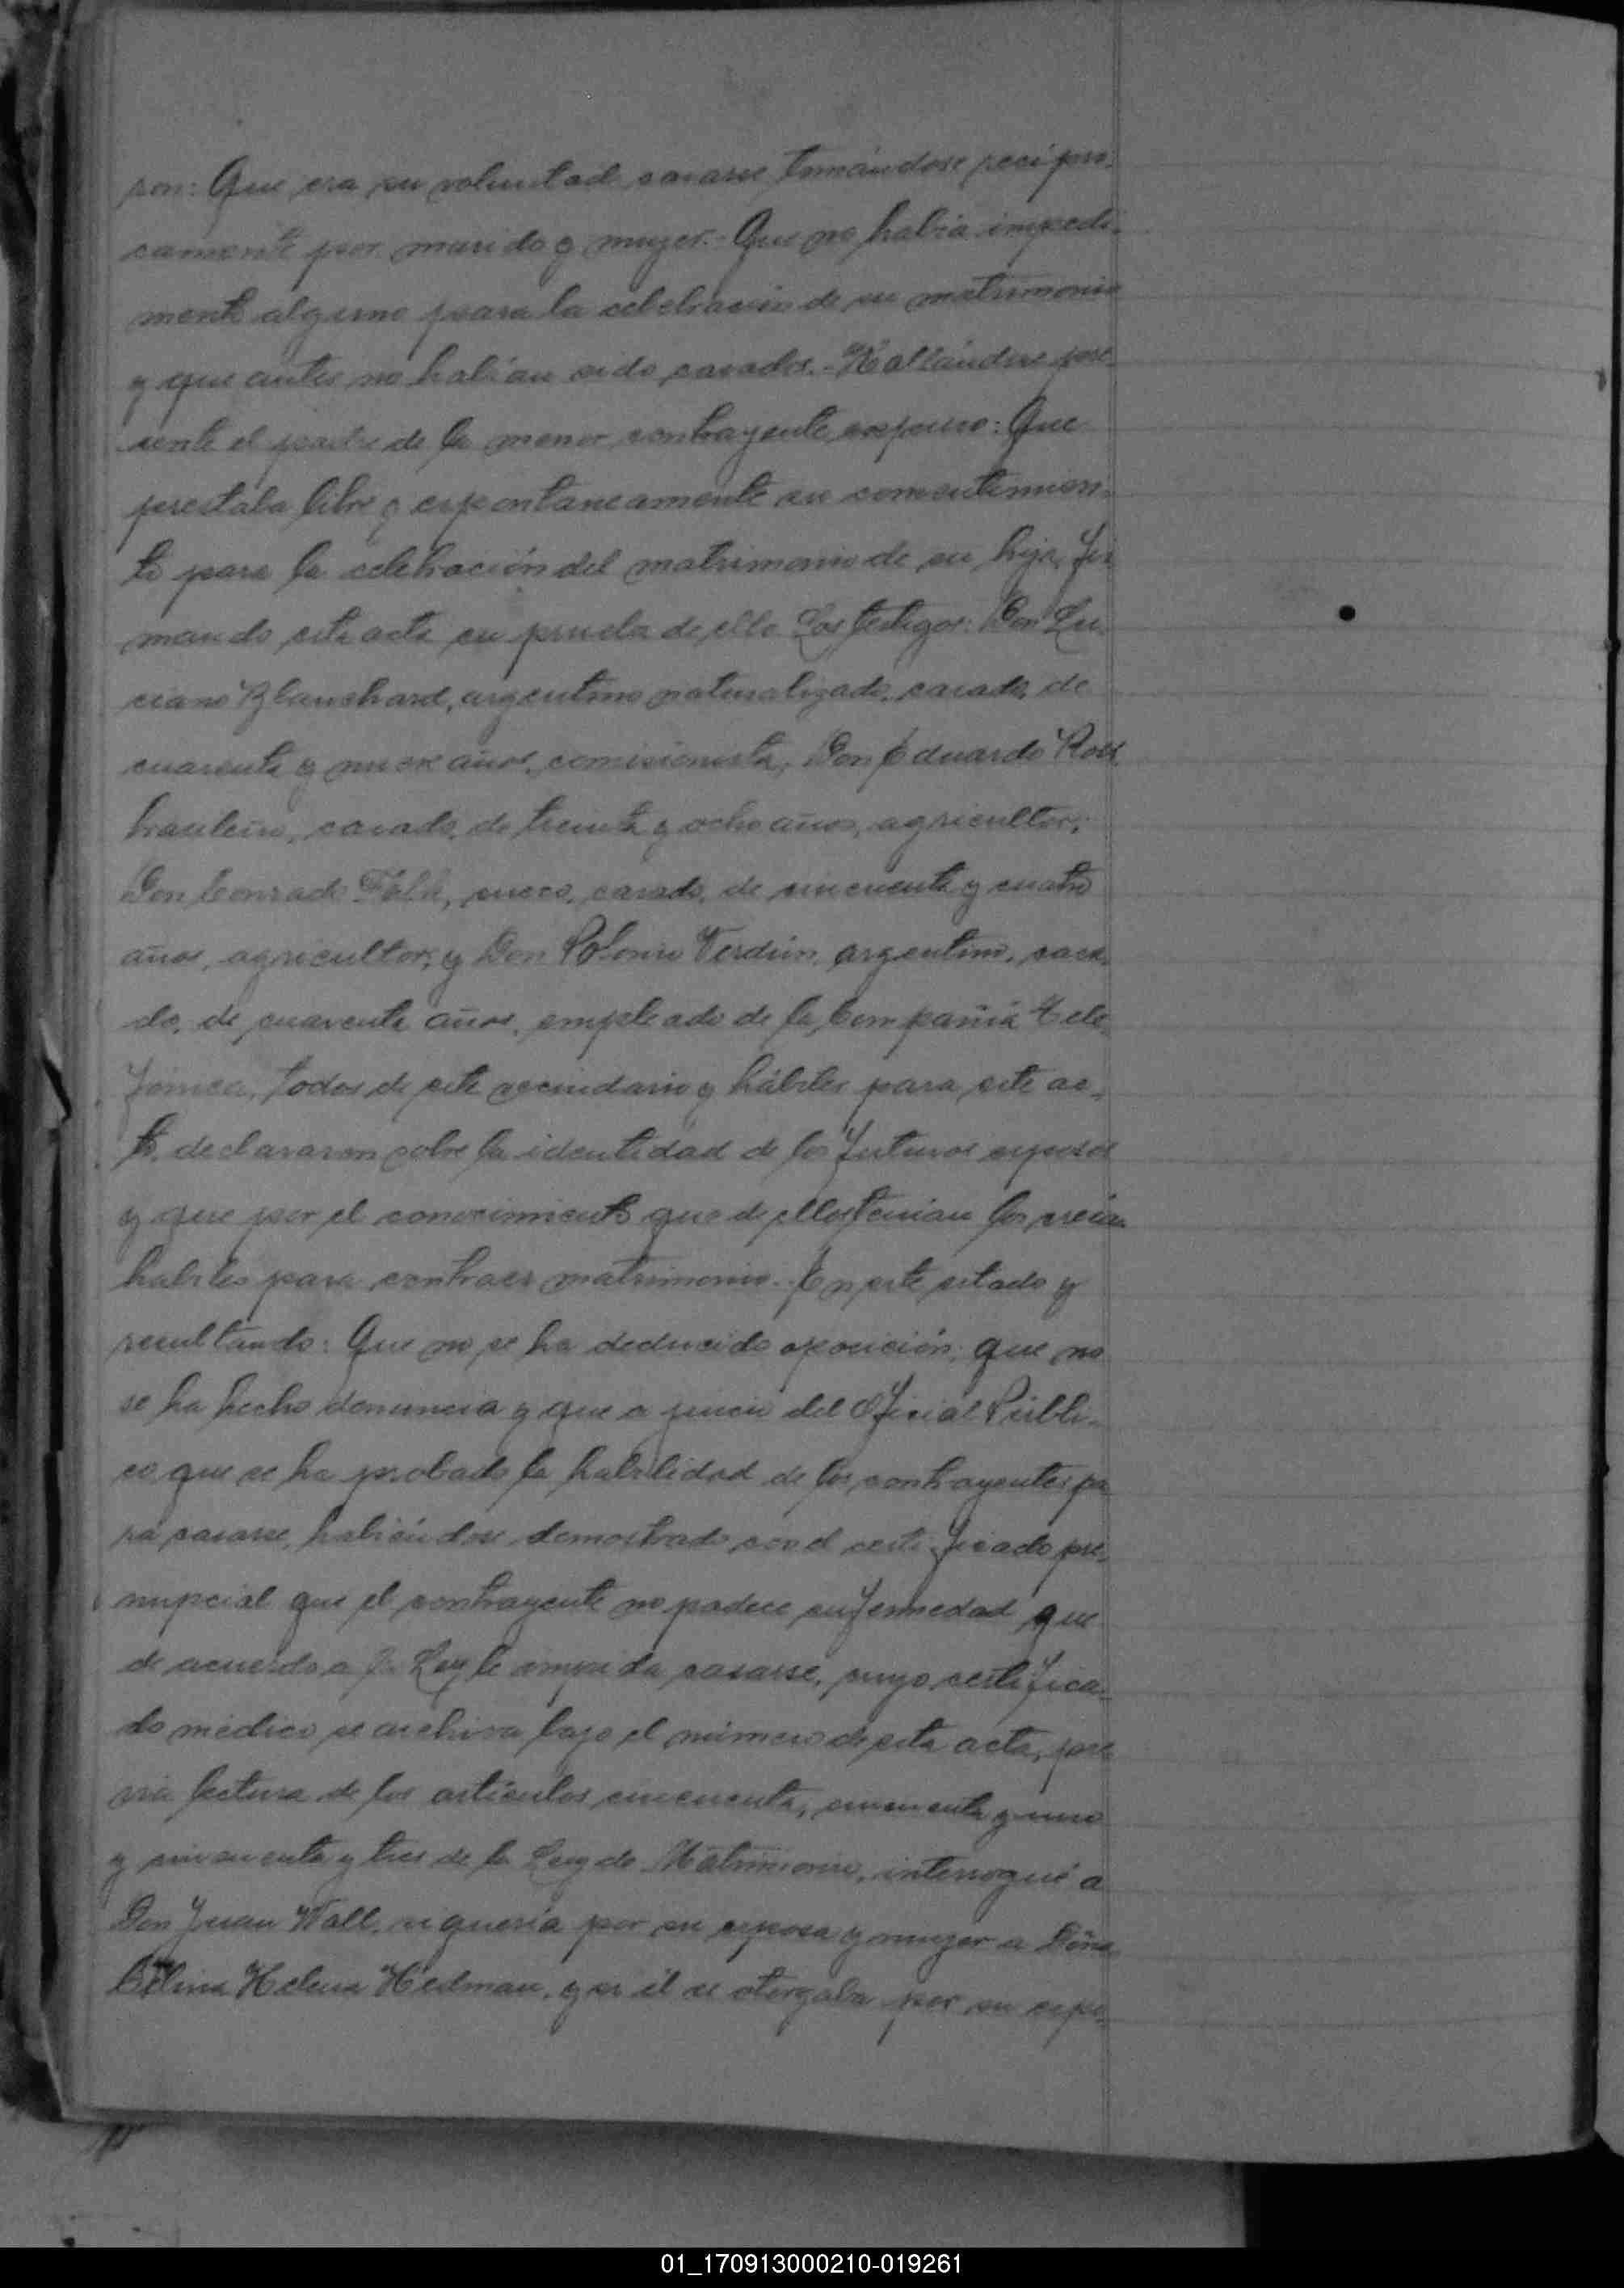 ron: Que era su voluntad casarse tomándose recipro-
camente por marido y mujer.- Que no habia impedi-
mento alguno para la celebración de su matrimonio
y que antes no habían sido casados.- Hallándose pre-
sente el padre de la menor contrayente expuso: Que
prestaba libre y espontaneamente su consentimien-
to para la celebración del matrimonio de su hija, fir
mando esta acta en prueba de ello Los testigos: Don Lu-
ciano Blanchard, argentino naturalizado, casado, de
cuarenta y nueve años, comisionista; Don Eduardo
brasilero, casado, de treinta y ocho años, agricultor;
Don Conrado Falk, sueco, casado, de cincuenta y cuatro
años, agricultor; y Don Polonio Verdún, argentino, casa-
do, de cuarenta años, empleado de la Compañía Tele-
fónica, todos de este vecindario y hábiles para este ac-
to, declararon sobre la identidad de los futuros esposos
y que por el conocimiento que de ellos tenían los creían
habiles para contraer matrimonio. En este estado y
resultando: Que no se ha deducido oposición; que no
se ha hecho denuncia y que a juicio del Oficial Públi-
co que se ha probado la habilidad de los contrayentes pa
ra casarse, habiéndose demostrado con el certificado pre-
nupcial que el contrayente no padece enfermedad que
de acuerdo a la Ley le impida casarse, cuyo certifica-
do médico se archiva bajo el número de esta acta, pre-
via lectura de los artículos cincuenta, cincuenta y uno
y cincuenta y tres de la Ley de Matrimonio, interrogué a
Don Juan Wall, si quería por su esposa y mujer a Doña
Helena Hedman, y si él se otorgaba por su espo-
01_170913000210-019261